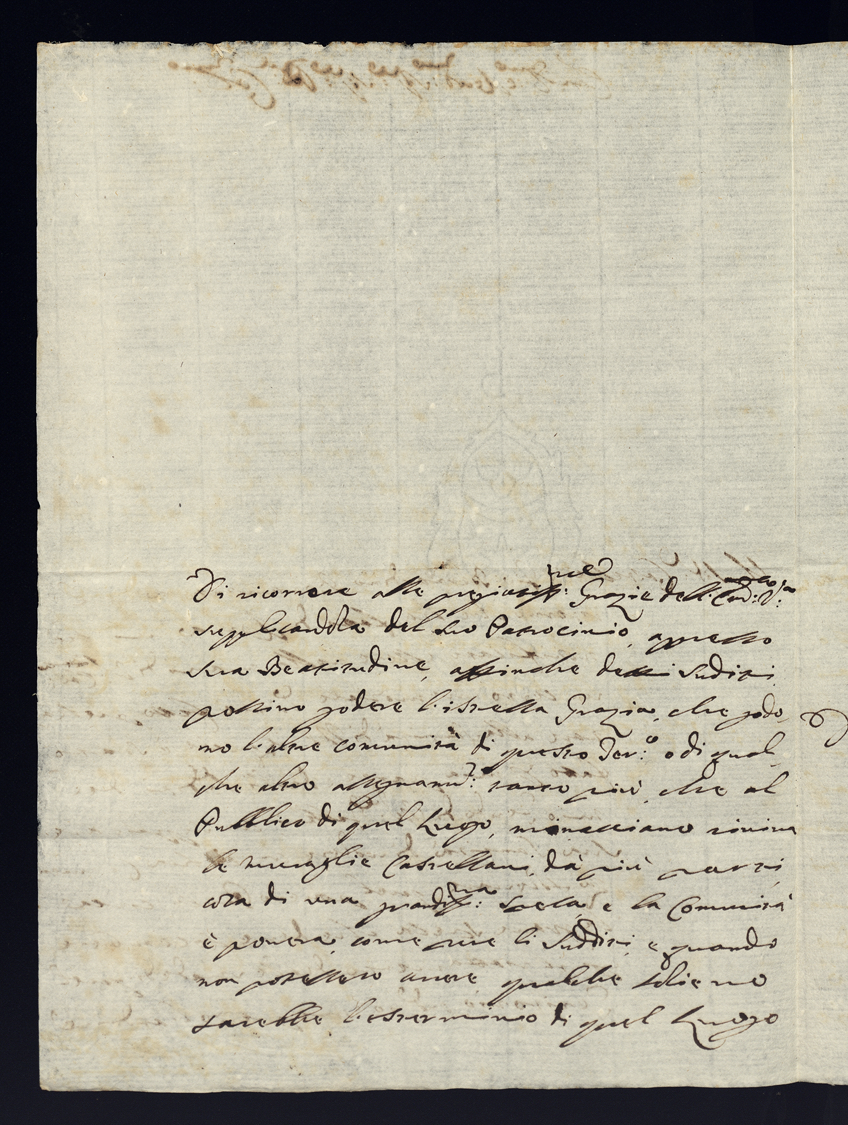 Di ricorrere alle preziosiss:me Grazie dell'
supplicandola del suo Patrocinio, appresso
Sua Beatitudine, affinche detti sudditi
possino godere l'istessa Grazia, che godo,
no l'altre comunità di questo Ter:o o di qual
che altro assegnam:to tanto più, che al
Publico di quel Luogo, minacciano rovina
le muraglie Castellani, da più parti,
cola di una grandiss:ma e la Comunità
è povera, come pure li Sudditi, e quando
non potessero avere qualche solievo
sarebbe l'esterminio di quel Luogo